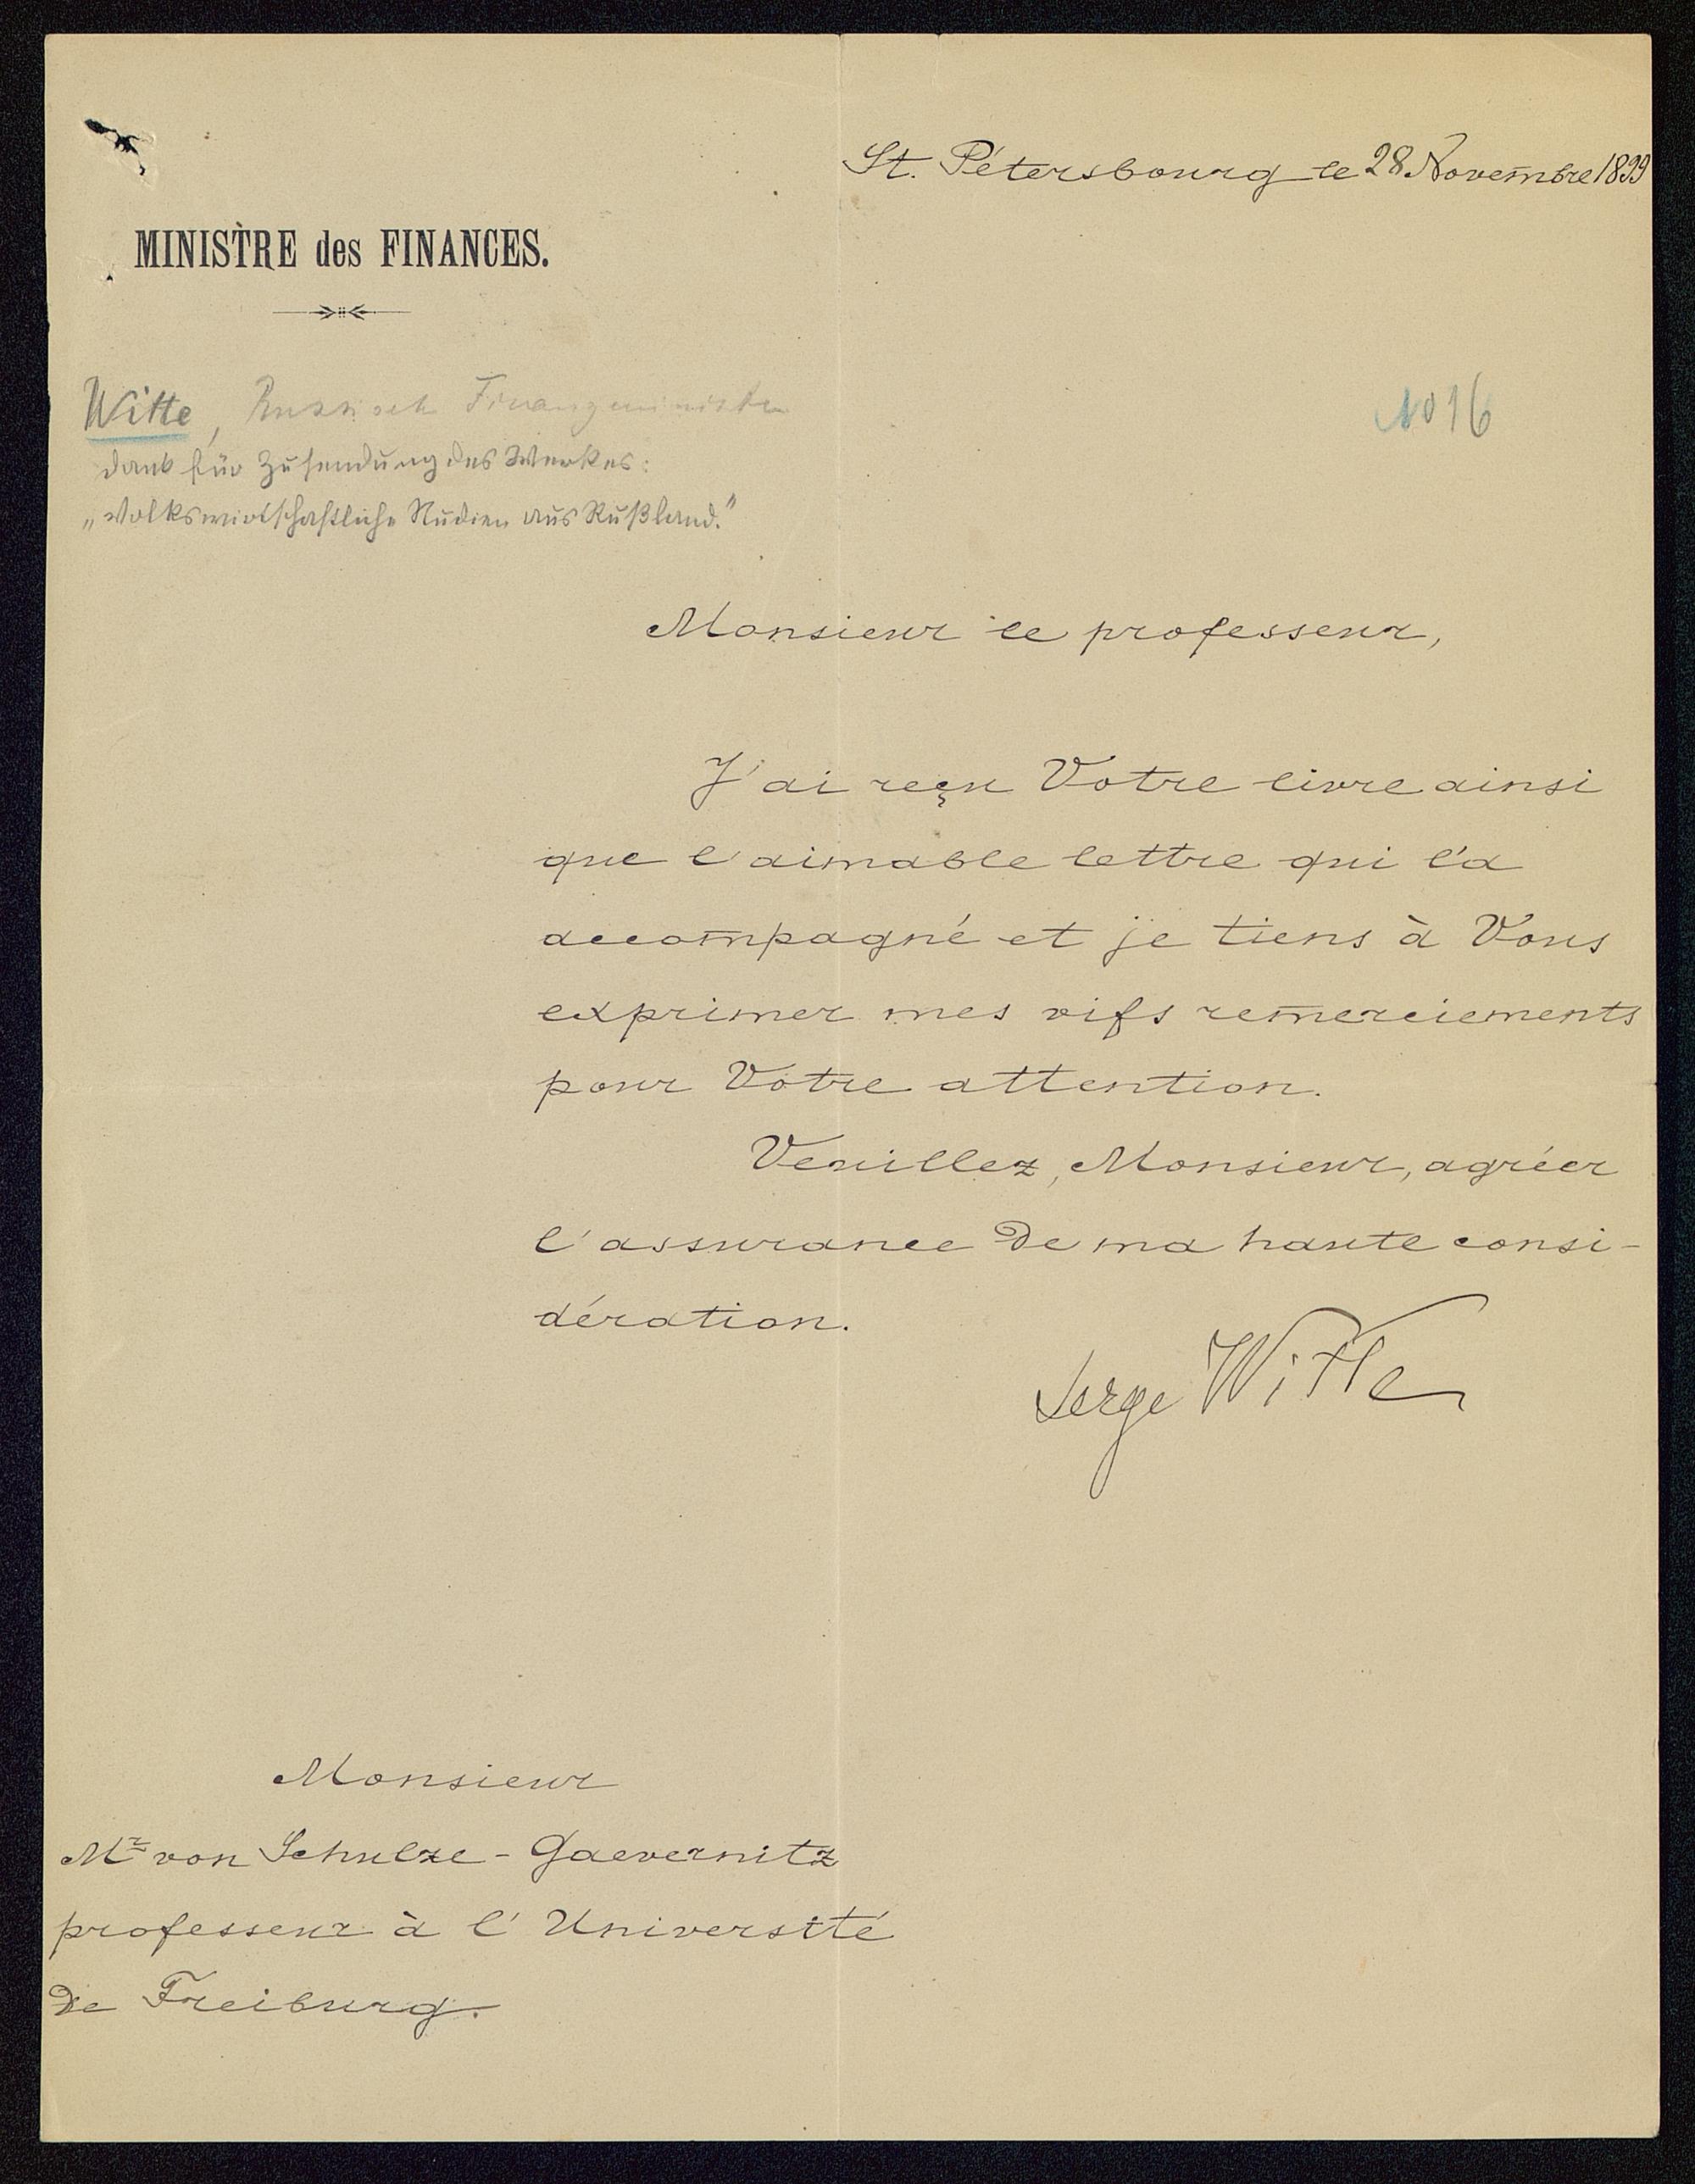 St. Pétersbourg le 28 Novembre 1899
MINISTÈRE des FINANCES.
Witte, Russisch Finanzminister
dank für Zusendung des Werkes:
„Volkswirtschaftliche Studien aus Rußland."
No 16
Monsieur le professeur,
J'ai reçu Votre livre ainsi
que l'aimable lettre qui l'a
accompagné et je tiens à Vous
exprimer mes vifs remerciements
pour Votre attention.
Veuillez, Monsieur, agréer
l'assurance de ma haute consi-
dération.
Serge Witte
Monsieur
Mr von Schulze-Gaevernitz
professeur à l'Université
de Freiburg.